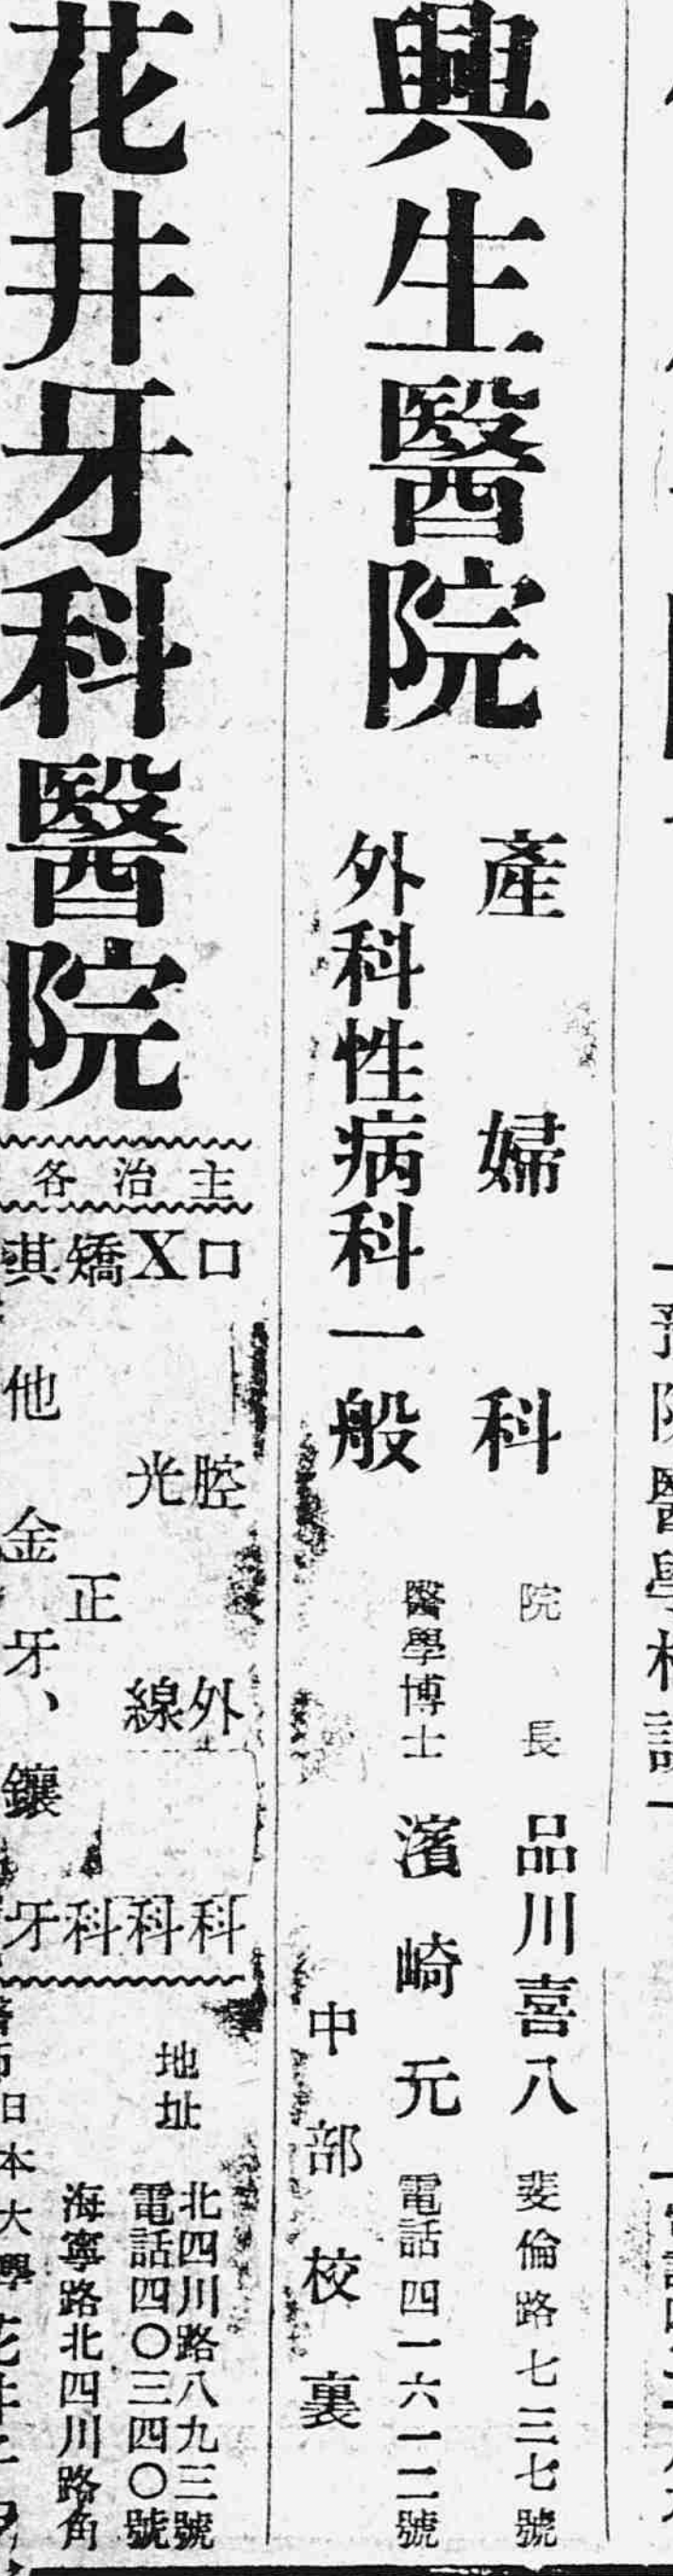 興生醫院
產婦科
外科性病科一般
院長 品川喜八
醫學博士 濱崎元
斐倫路七三七號
電話四一六一二號
中部校裏
花井牙科醫院
主治各
口腔外科
X光線科
矯正科
其他金牙、鑲牙
地址
北四川路八九三號
電話四〇三四〇號
海寧路北四川路角
日本大學